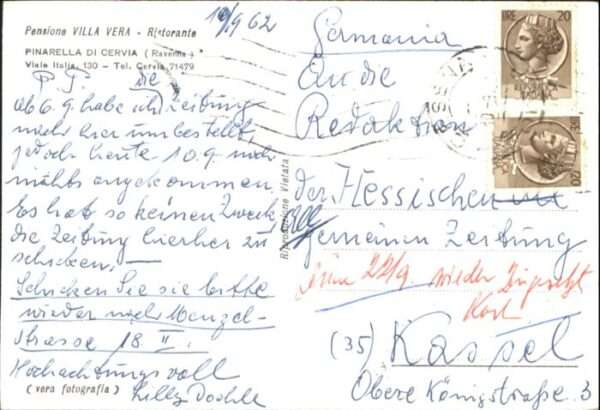 Pensione VILLA VERA - Ristorante
PINARELLA DI CERVIA (Ravenna)
Viale Italia, 130 - Tel. Cervia 71479
10/9 62
P. P.
Ab 6.9. habe ich die Zeitung
nach hier umbestellt,
jedoch heute 10.9. noch
nichts angekommen.
Es hat so keinen Zweck,
die Zeitung hierher zu
schicken. —
Schicken Sie sie bitte
wieder nach Menzel-
strasse 18 II.
Hochachtungsvoll
Lilly
( vera fotografia )
Riproduzione Vietata
LIRE 20
20
Germania
An die
Redaktion
der Hessischen
All
gemeinen Zeitung
22/9 wieder
(35) Kassel
Obere Königstraße 3